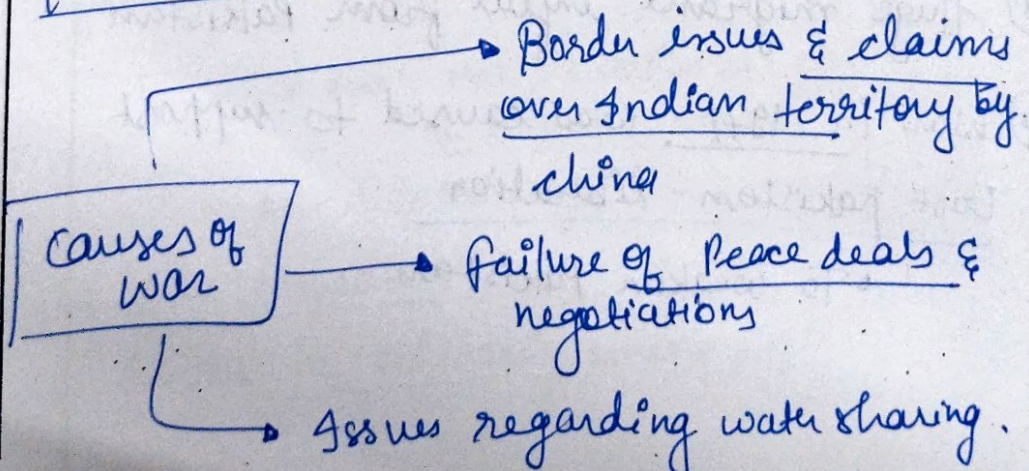 Border issues & claims
over Indian territory by
china
Causes of
war
Failure of Peace deals &
negotiations
Issues regarding water sharing.